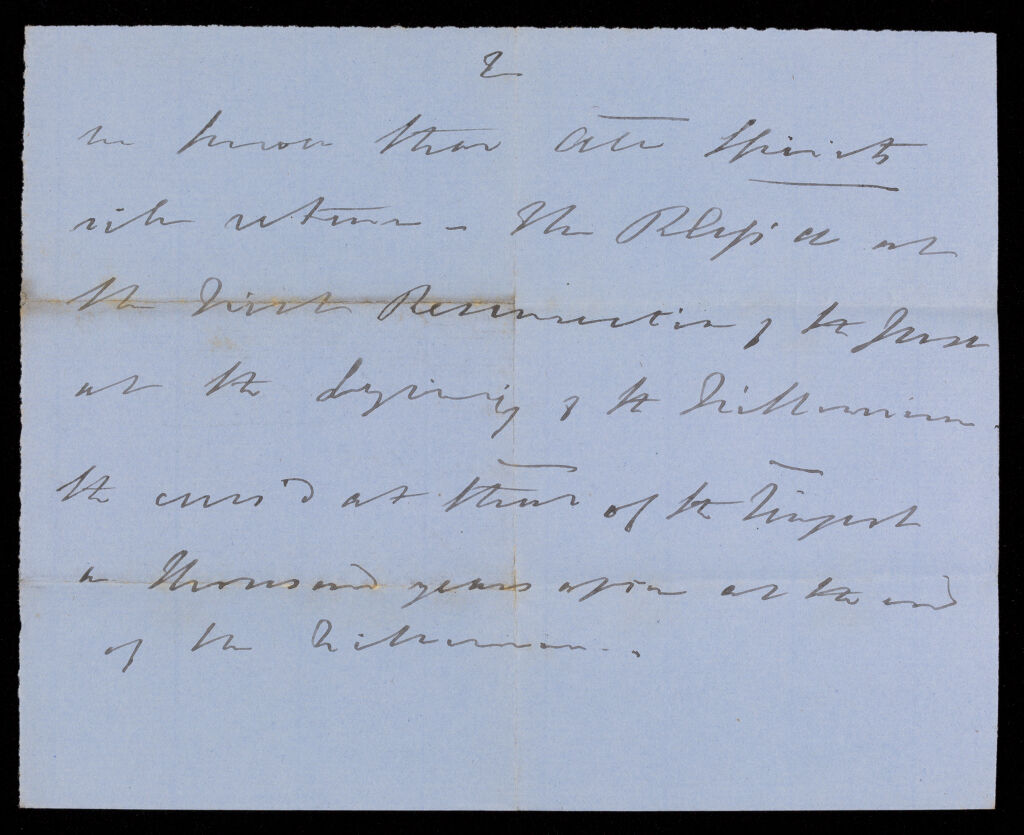 2
we know that all Spirits
will return - The Blessed at
the First Resurrection of the Just
at the beginning of the Millennium.
the curs'd at that of the Unjust
a thousand years after at the end
of the Millennium.